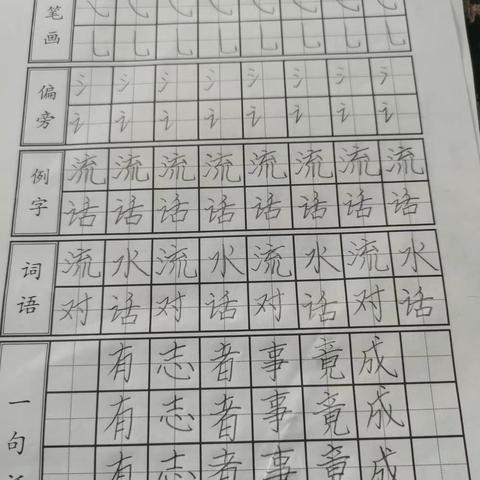 笔画
偏旁 氵 氵 氵 氵 氵 氵 氵 氵
讠 讠 讠 讠 讠 讠 讠 讠
例字 流 流 流 流 流 流 流 流
话 话 话 话 话 话 话 话
词语 流 水 流 水 流 水 流 水
对 话 对 话 对 话 对 话
一句 有 志 者 事 竟 成
有 志 者 事 竟 成
有 志 者 事 竟 成